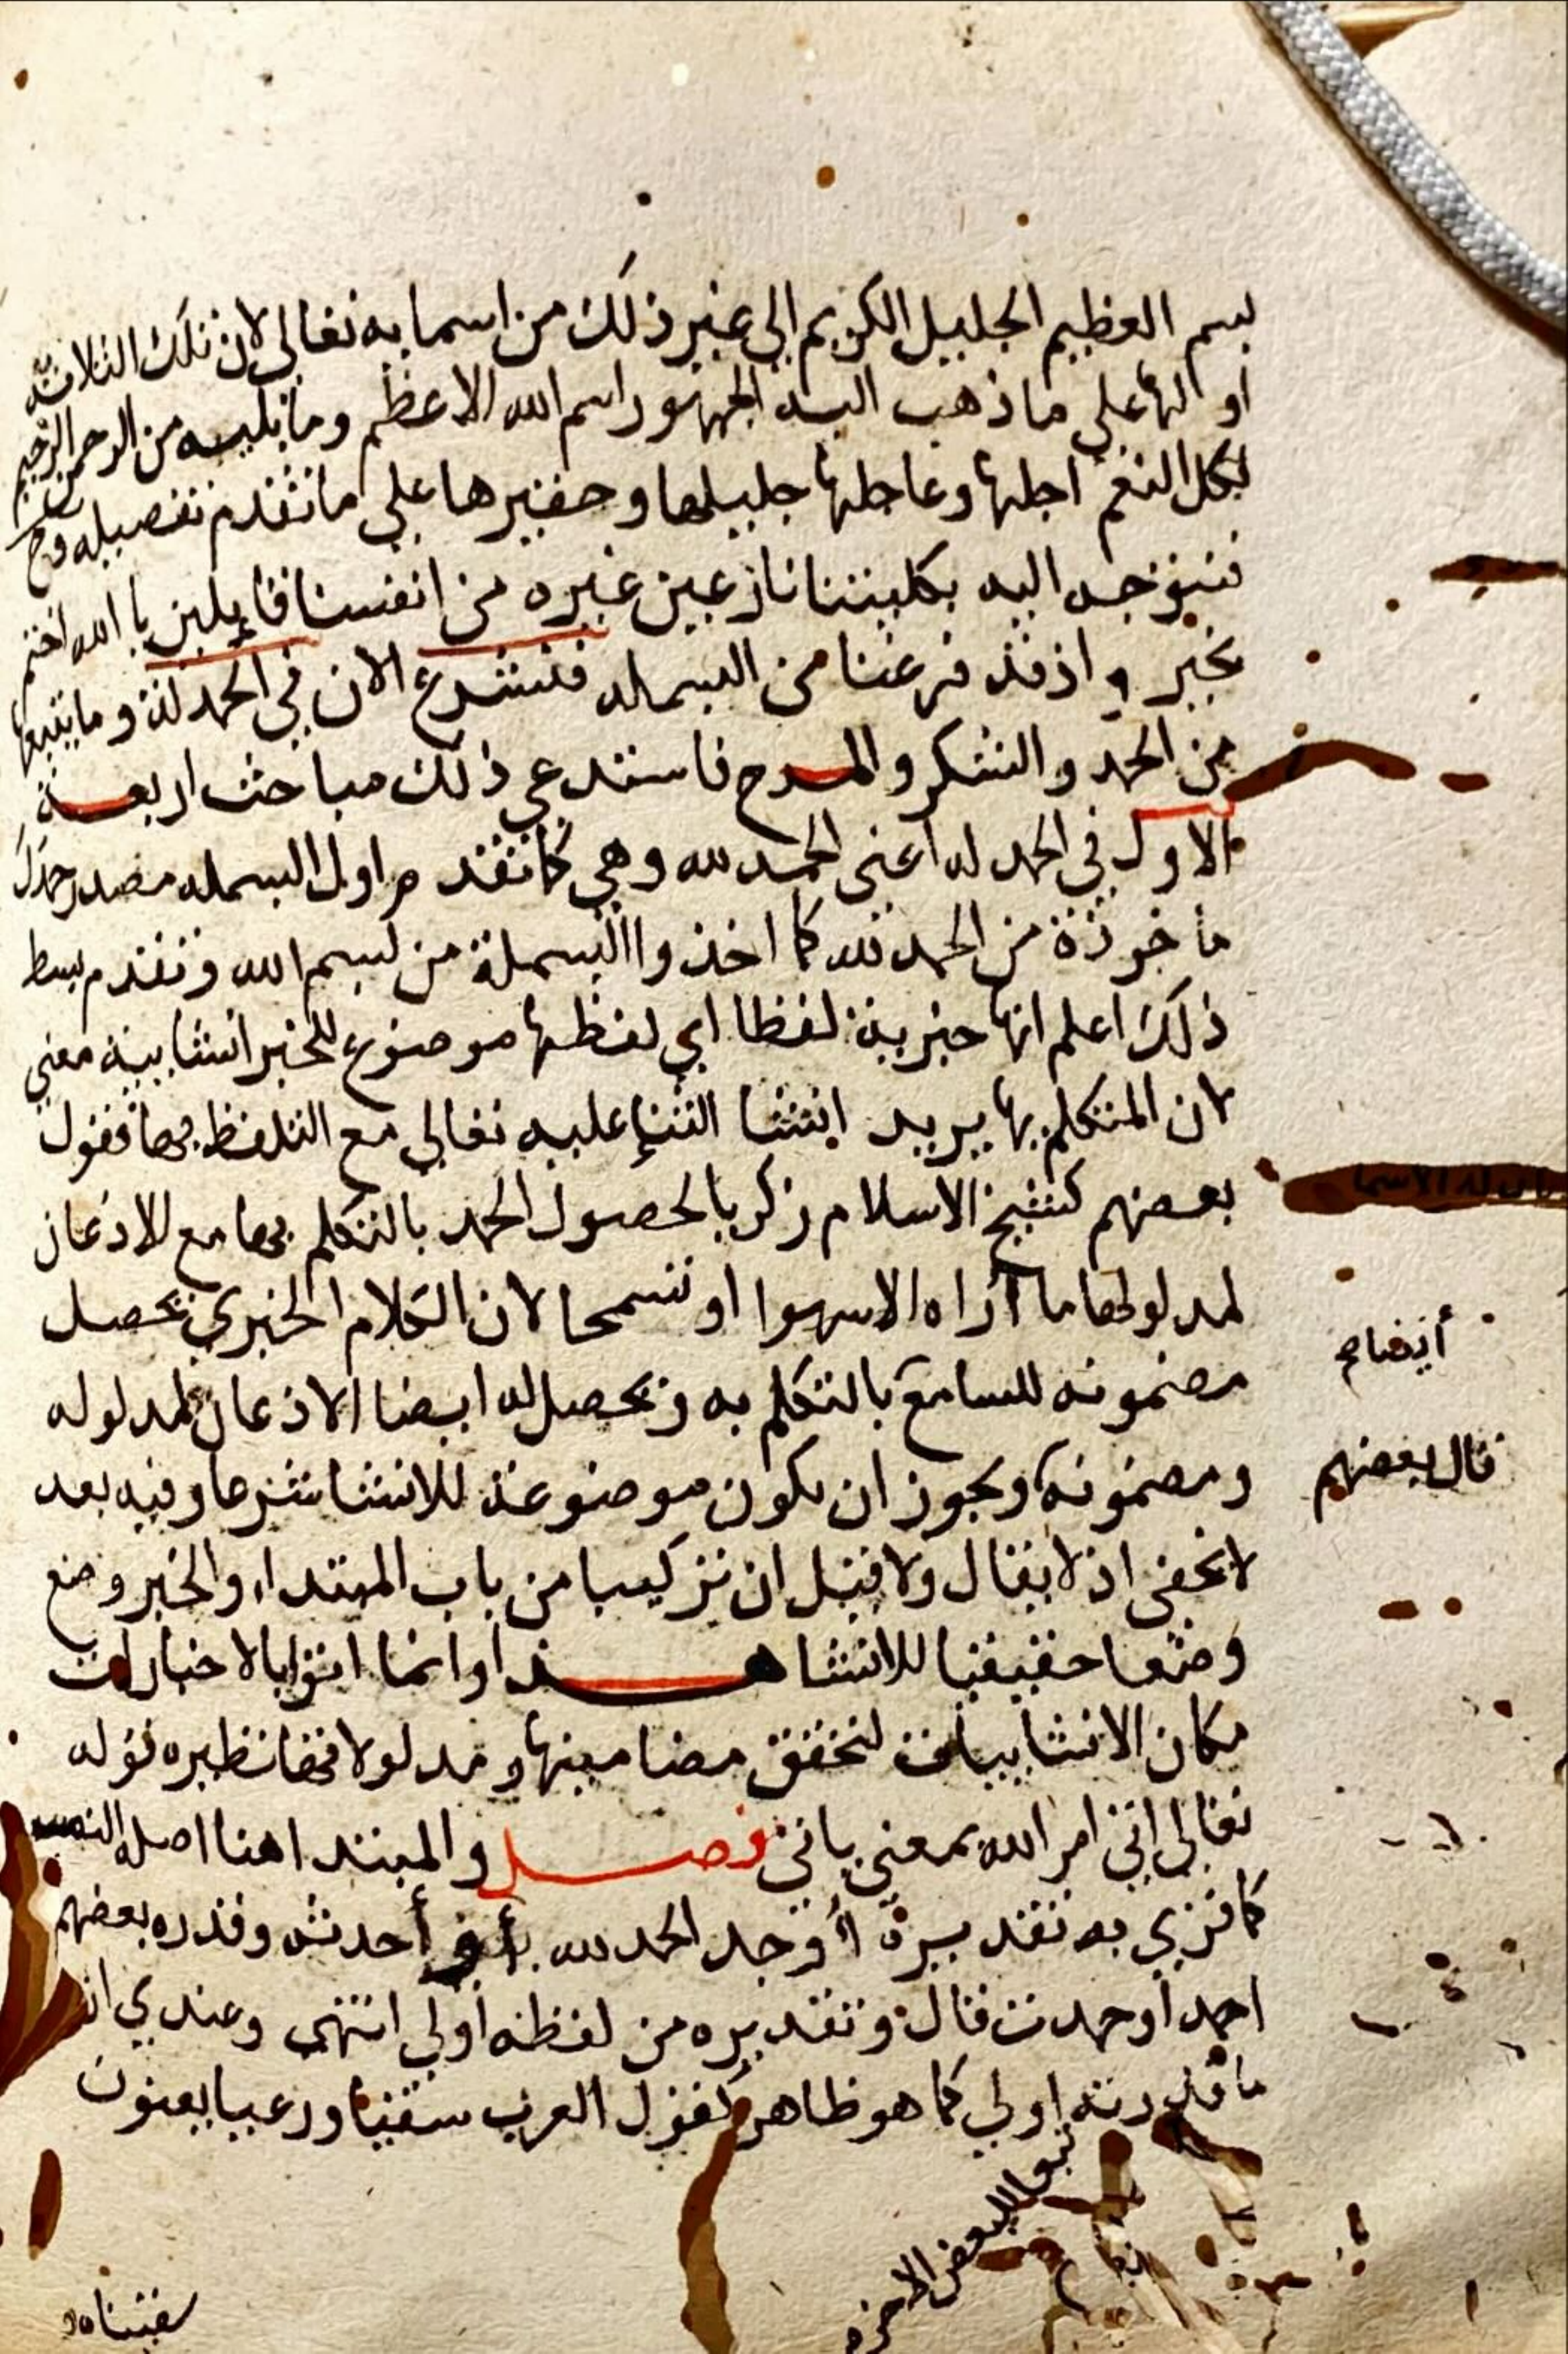 بسم العظيم الجليل الكريم الى غير ذلك من اسمايه تعالى لان تلك الثلاثة
او الها على ما ذهب اليه الجمهور اسم الله الاعظم وما يليه من الرحمن الرحيم
لكل النعم اجلها وعاجلها جليلها وحقيرها على ما تقدم تفصيله وح
فنتوجه اليه بكليتنا نازعين غيره من انفسنا قايلين يا الله اختم
بخير واذ قد فرغنا من البسمله فنشرع الان في الحمدلة وما يتبعها
من الحمد والشكر والمدح فاستدعي ذلك مباحث اربعة
الاول في الحمد له اعني الحمد لله وهي كما تقدم اول البسمله مصدر حمدل
ماخوذة من الحمد لله كما اخذوا البسملة من بسم الله وتقدم بسط
ذلك اعلم انها خبرية لفظا اي لفظها موضوع للخبر انشايية معني
لان المتكلم بها يريد انشا الثناء عليه تعالي مع التلفظ بها فقول
بعضهم كشيخ الاسلام زكريا لحصول الحمد بالتكلم بها مع الاذعان
لمدلولها ما أراه الا سهوا او تسمحا لان الكلام الخبري يحصل
مضمونه للسامع بالتكلم به ويحصل له ايضا الاذعان لمدلوله
ومضمونه ويجوز ان يكون موضوعة للانشا شرعا وفيه بعد
لا يخفى اذ لا يقال ولا قيل ان تركيبا من باب المبتداء والخبر وضع
وضعا حقيقيا للانشا هذا وانما اتوا بالاخبارات
مكان الانشاييات لتحقق مضامينها ومدلولاتها نظيره قوله
تعالى اتي امر الله بمعني ياتي فصل والمبتدا هنا اصله النصب
كما تري به تقديره أوجد الحمد لله أو أحدثه وقدره بعضهم
احمد أو حمدت قال وتقديره من لفظه أولي انتهى وعندي ان
ما قدرته اولي كما هو ظاهر كقول العرب سقيا ورعيا يعنون
سقيناه
أيضا صح
قال بعضهم